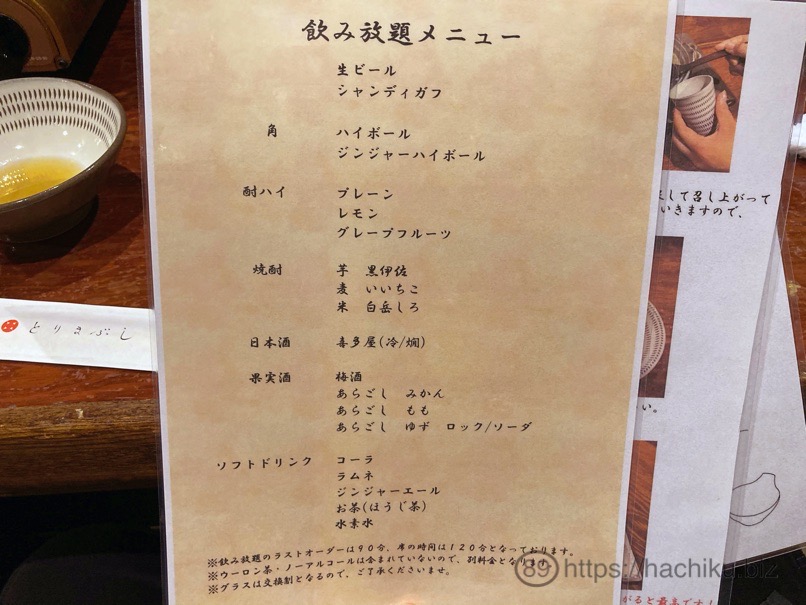 飲み放題メニュー
生ビール
シャンディガフ
角 ハイボール
ジンジャーハイボール
酎ハイ プレーン
レモン
グレープフルーツ
焼酎 芋 黒伊佐
麦 いいちこ
米 白岳しろ
日本酒 喜多屋(冷/燗)
果実酒 梅酒
あらごし みかん
あらごし もも
あらごし ゆず ロック/ソーダ
ソフトドリンク コーラ
ラムネ
ジンジャーエール
お茶(ほうじ茶)
水素水
※飲み放題のラストオーダーは90分、席の時間は120分となっております。
※ウーロン茶・ノーアルコールは含まれていないので、別料金となります。
※グラスは交換制となるので、ご了承くださいませ。
とりまぶし
して召し上がって
いきますので、
い。
がると最高です!
89 https://hachika.biz